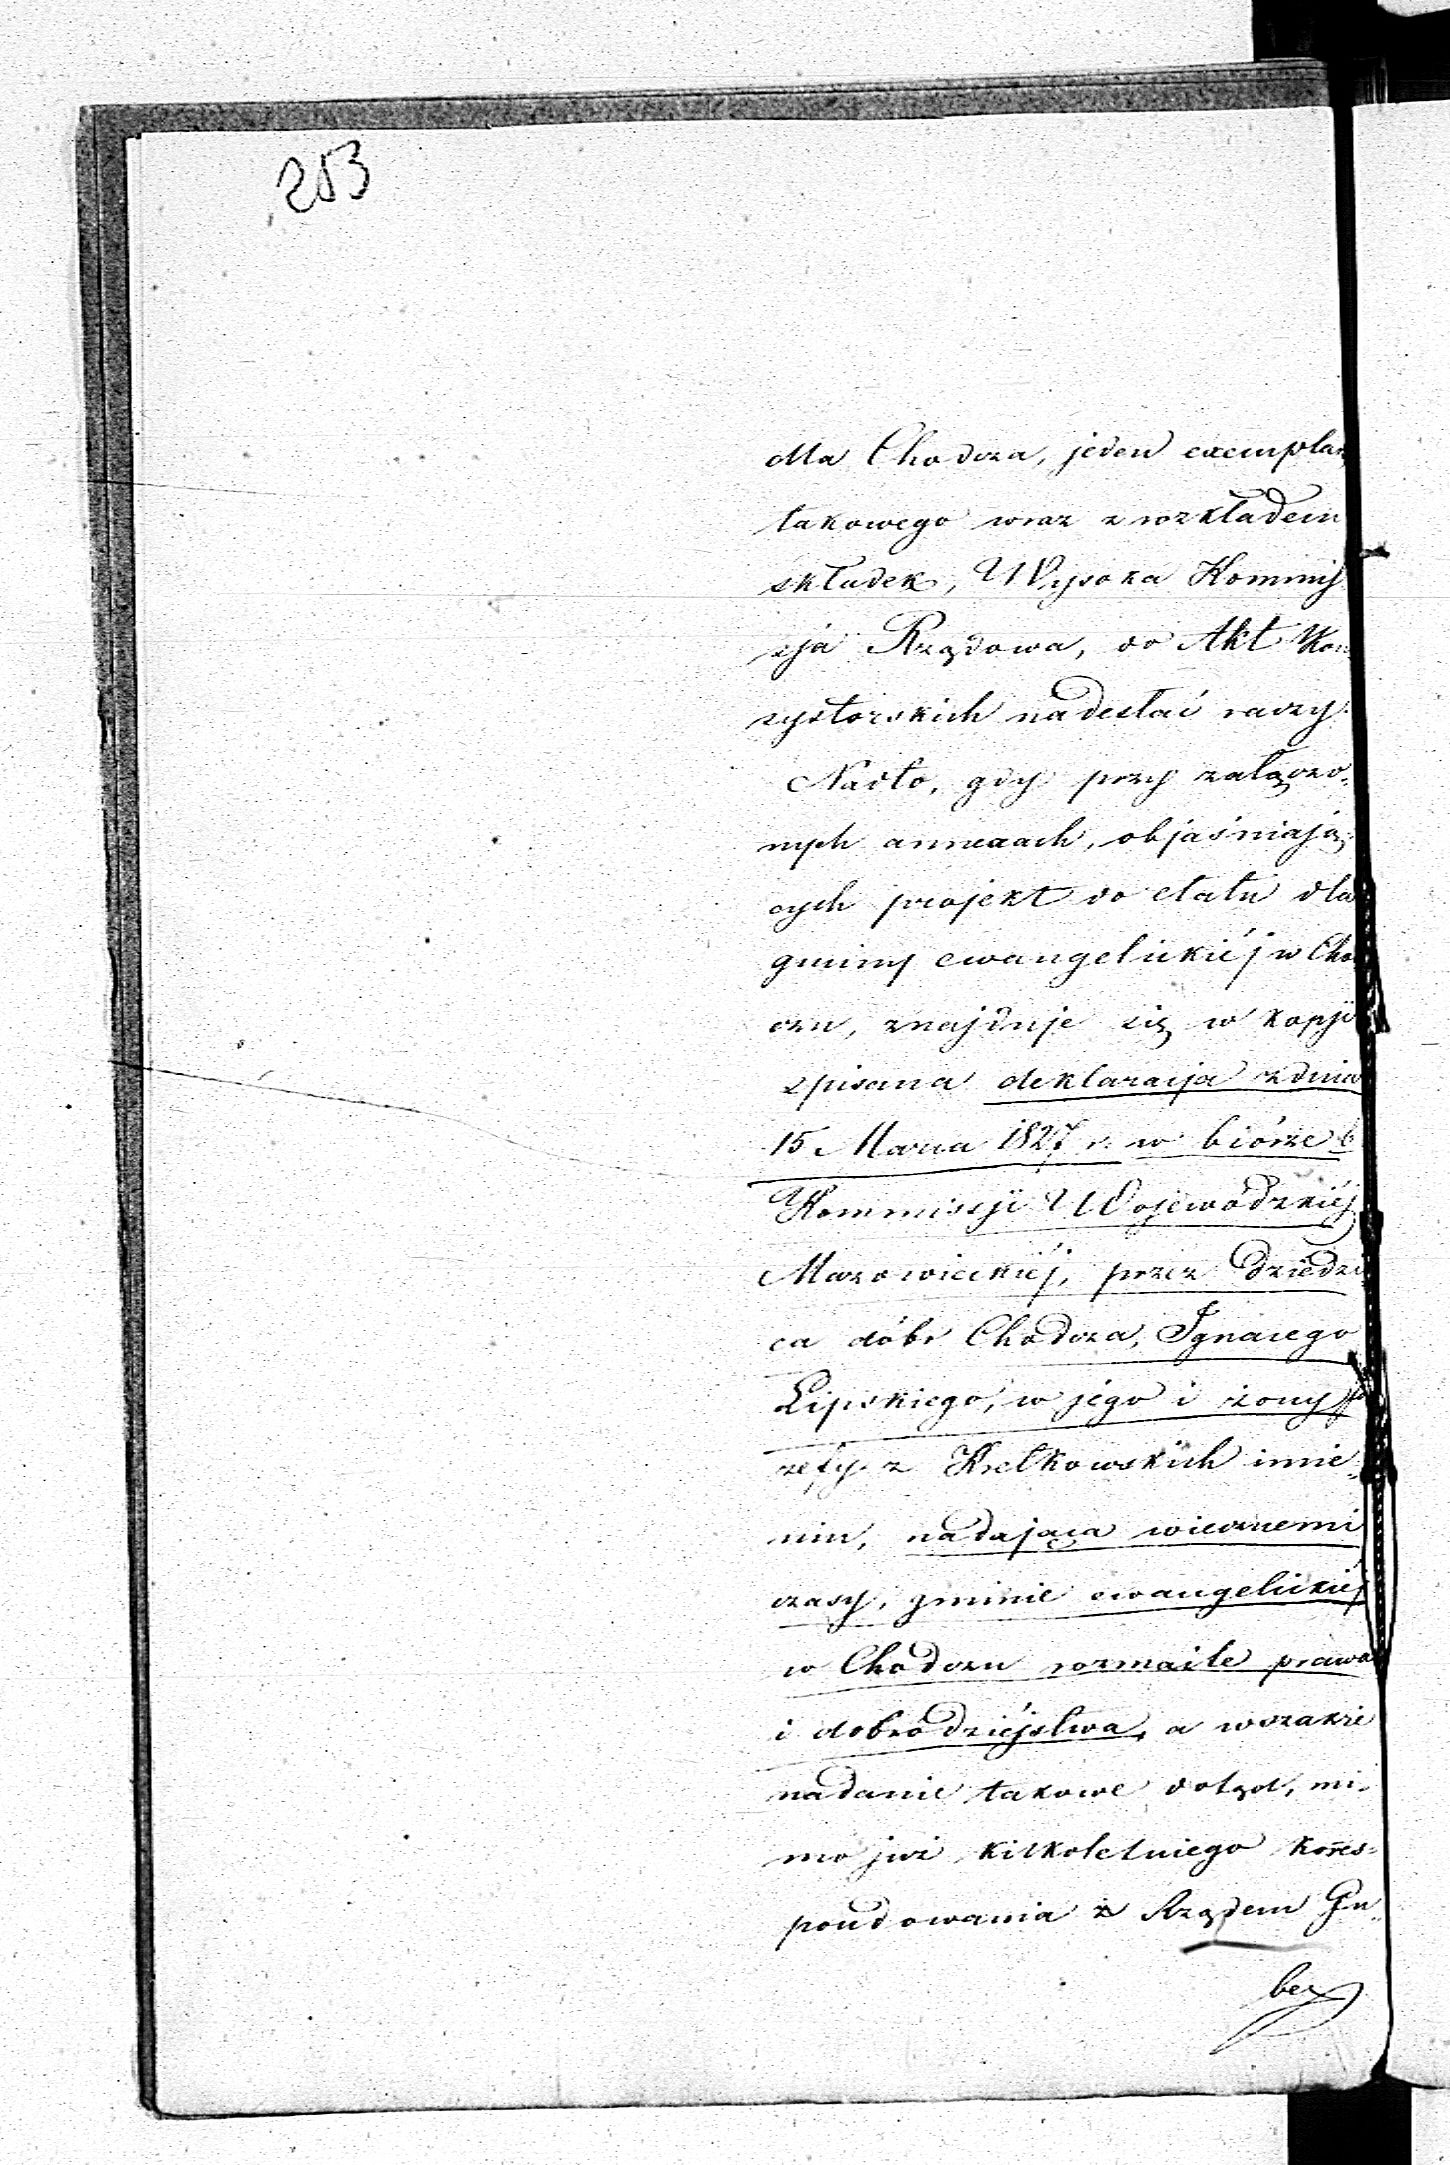 253
dla Chodcza, jeden exemplarz
takowego wraz z rozkładem
składek, Wysoka Kommis
sja Rządowa, do Akt Kon
systorskich nadesłać raczy.
Nadto, gdy przy załączo-
nych annexach, objaśniają,
cych projekt do etatu dla
gminy ewangelickiéj w Cho
czu, znajduje się w kopji
spisana deklaracja z dnia
15 Marca 1827 r. w biórze b
Kommissji Wojewódzkiéj
Mazowieckiéj, przez dziedzi
ca dóbr Chodcza, Ignacego
Lipskiego, w jego i żony Jó
zefy z Kretkowskich imie-
niu, nadająca wiecznemi
czasy, gminie ewangelickiéj
w Chodczu rozmaite prawa
i dobrodziéjstwa, a wszakże
nadanie takowe dotąd, mi-
mo już kilkoletniego kores-
pondowania z Rządem Gu-
ber